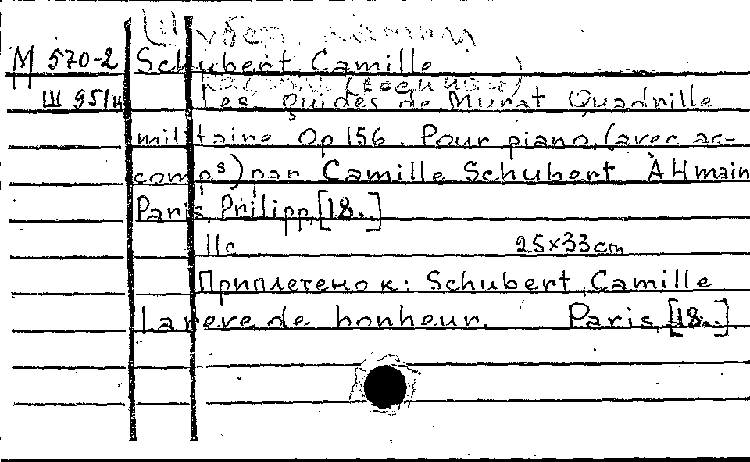 Шуберт, Камилл
M 570-2 Schubert Camille
Ш 951
Les guides de Murat Quadrille
militaire Op 156. Pour piano, (avec ac-
comps) par Camille Schubert À 4 main
Paris, Philipp, [18..]
11с 25×33cm
Приплетено к: Schubert, Camille
La reve de bonheur. Paris, [18..]